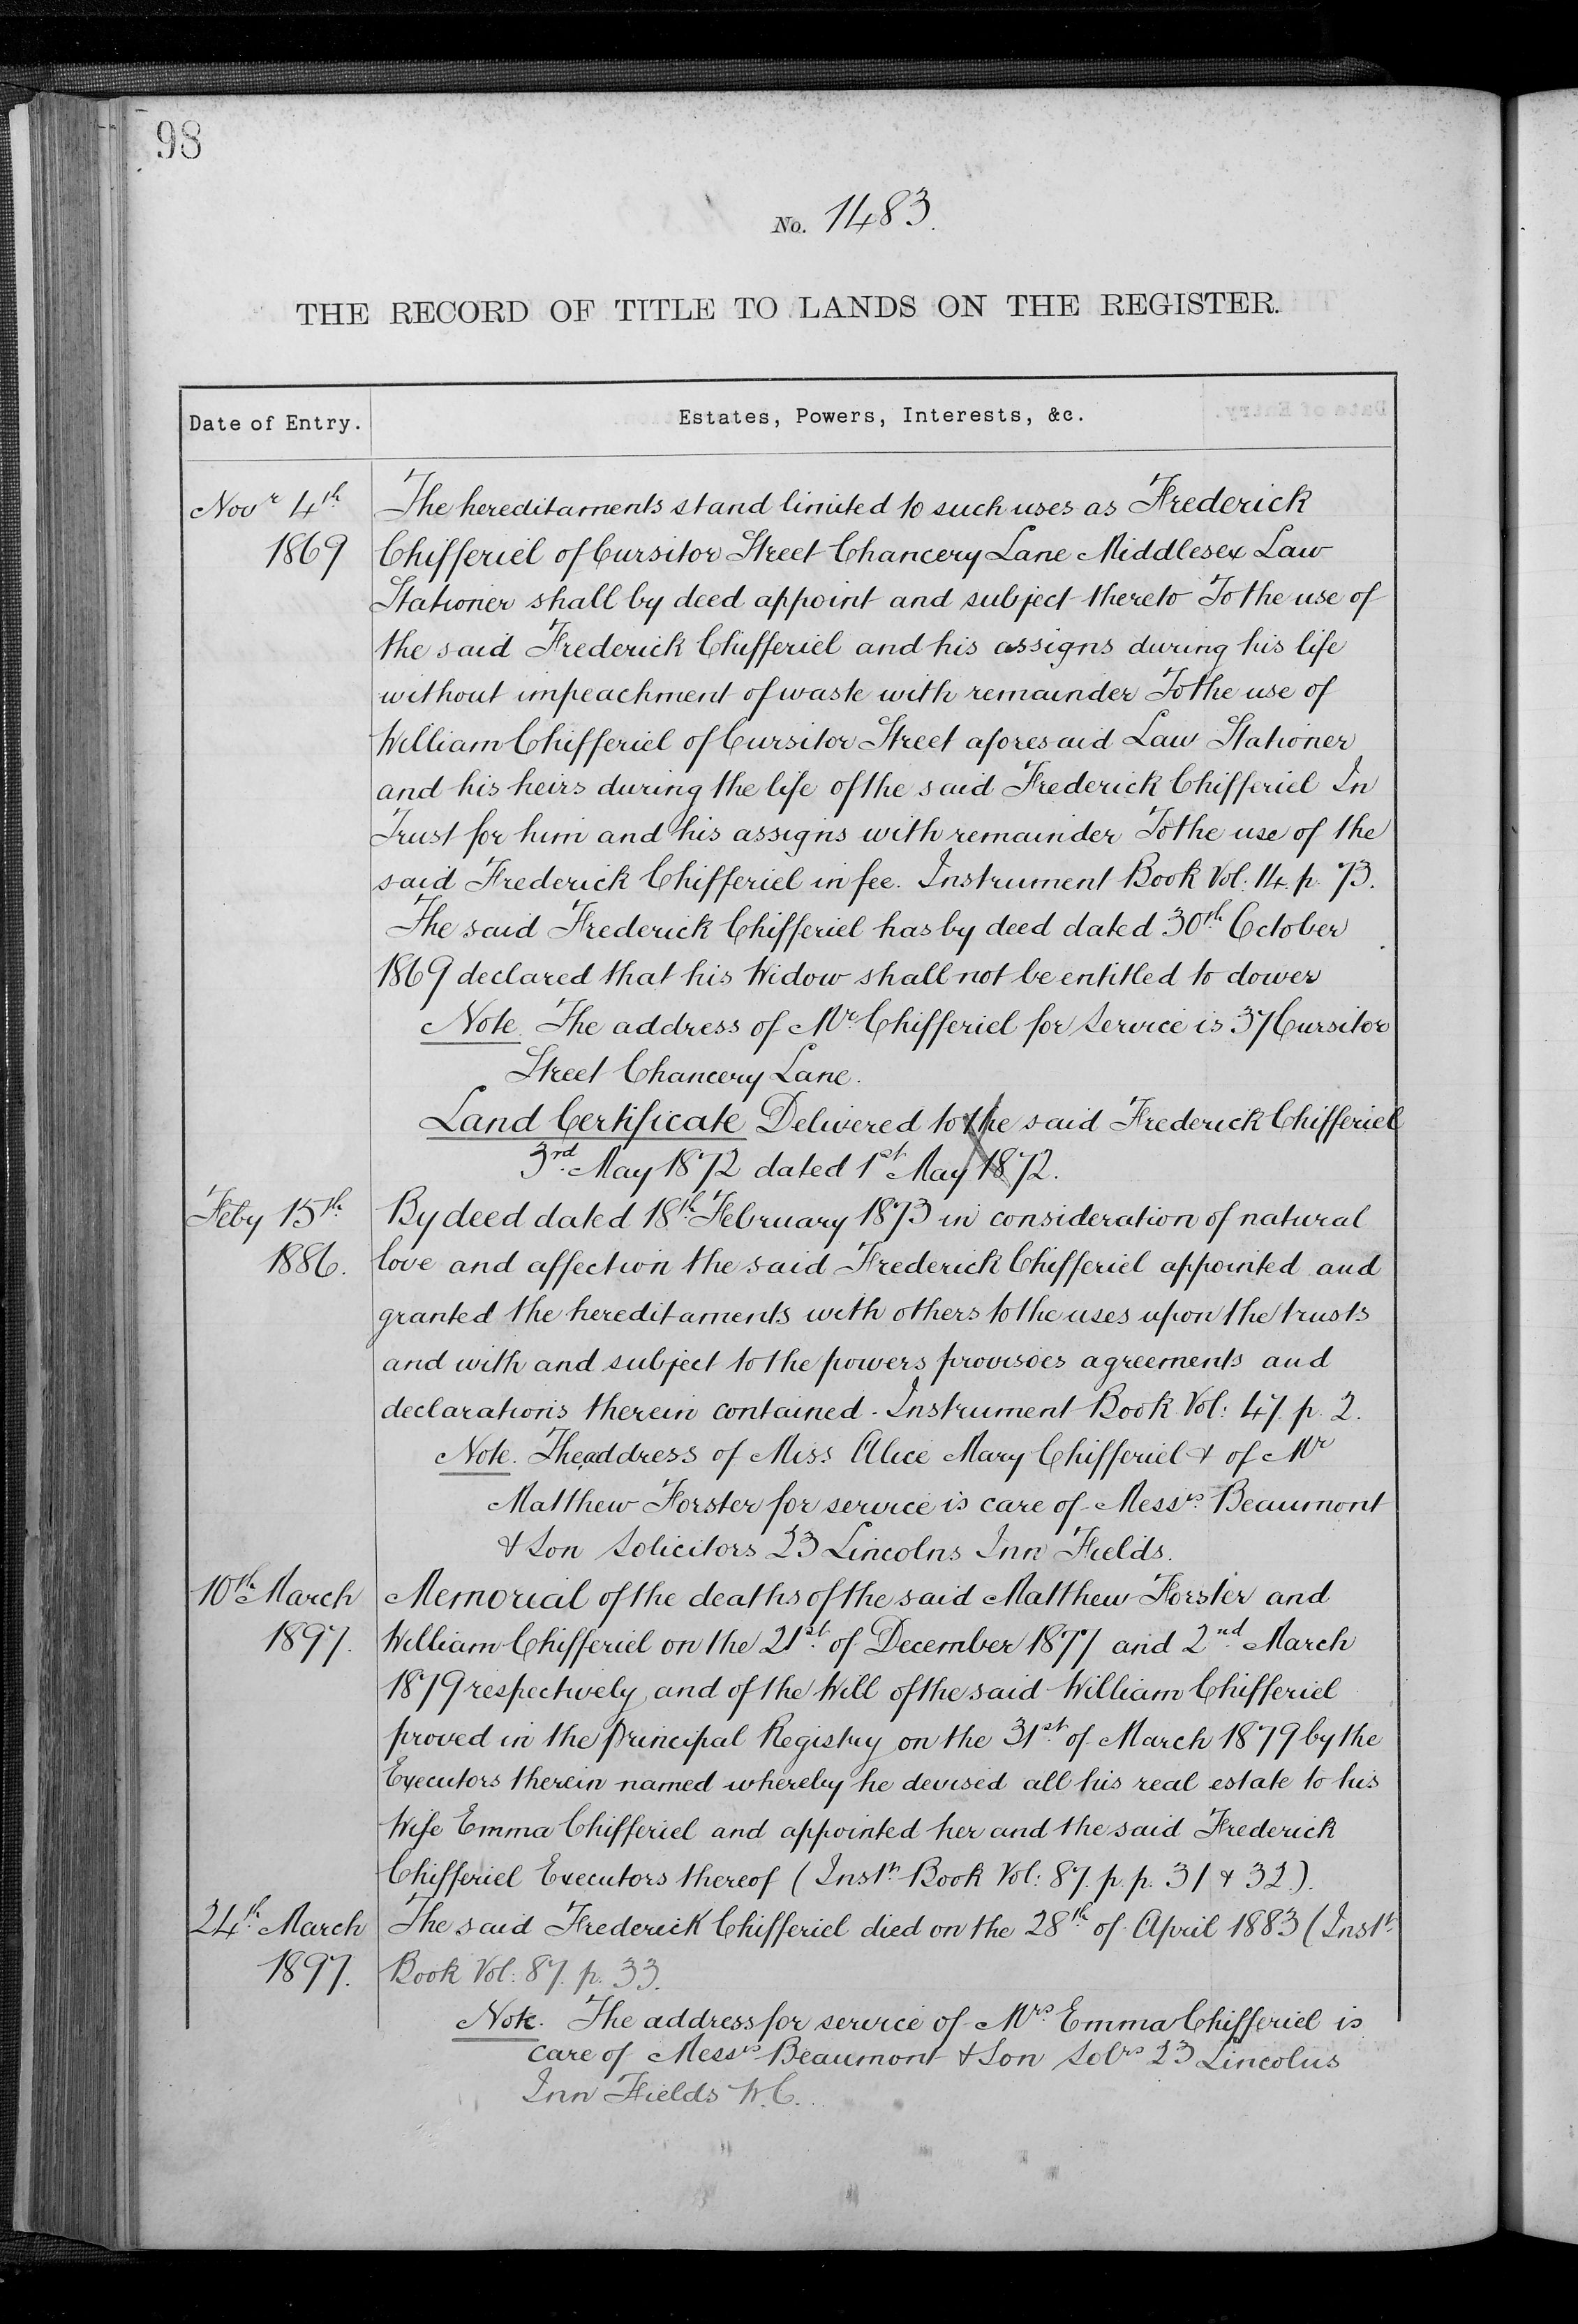 98
No. 1483.
THE RECORD OF TITLE TO LANDS ON THE REGISTER.
Date of Entry.
Estates, Powers, Interests, &c.
Novr 4th
1869
The hereditaments stand limited to such uses as Frederick
Chifferiel of Cursitor Street Chancery Lane Middlesex Law
Stationer shall by deed appoint and subject thereto To the use of
the said Frederick Chifferiel and his assigns during his life
without impeachment of waste with remainder To the use of
William Chifferiel of Cursitor Street aforesaid Law Stationer
and his heirs during the life of the said Frederick Chifferiel In
Trust for him and his assigns with remainder To the use of the
said Frederick Chifferiel in fee. Instrument Book Vol: 14. p. 73.
The said Frederick Chifferiel has by deed dated 30th October
1869 declared that his Widow shall not be entitled to dower
Note. The address of Mr. Chifferiel for Service is 37 Cursitor
Street Chancery Lane.
Land Certificate Delivered to the said Frederick Chifferiel
3rd. May 1872 dated 1st. May 1872.
Feby 15th.
1886.
By deed dated 18th. February 1873 in consideration of natural
love and affection the said Frederick Chifferiel appointed and
granted the hereditaments with others to the uses upon the trusts
and with and subject to the powers provisoes agreements and
declarations therein contained. Instrument Book Vol: 47. p. 2.
Note. The address of Miss Alice Mary Chifferiel & of Mr
Matthew Forster for service is care of Messrs. Beaumont
& Son Solicitors 23 Lincolns Inn Fields.
10th. March
1897.
Memorial of the deaths of the said Matthew Forster and
William Chifferiel on the 21st. of December 1877 and 2nd. March
1879 respectively, and of the Will of the said William Chifferiel
proved in the principal Registry on the 31st. of March 1879 by the
Executors therein named whereby he devised all his real estate to his
Wife Emma Chifferiel and appointed her and the said Frederick
Chifferiel Executors thereof (Instt. Book Vol: 87. p.p. 31 & 32.).
24th. March
1897.
The said Frederick Chifferiel died on the 28th. of April 1883 (Instt.
Book Vol: 87. p. 33.
Note. The address for service of Mrs. Emma Chifferiel is
care of Messrs Beaumont & Son Solrs 23 Lincolns
Inn Fields W.C.